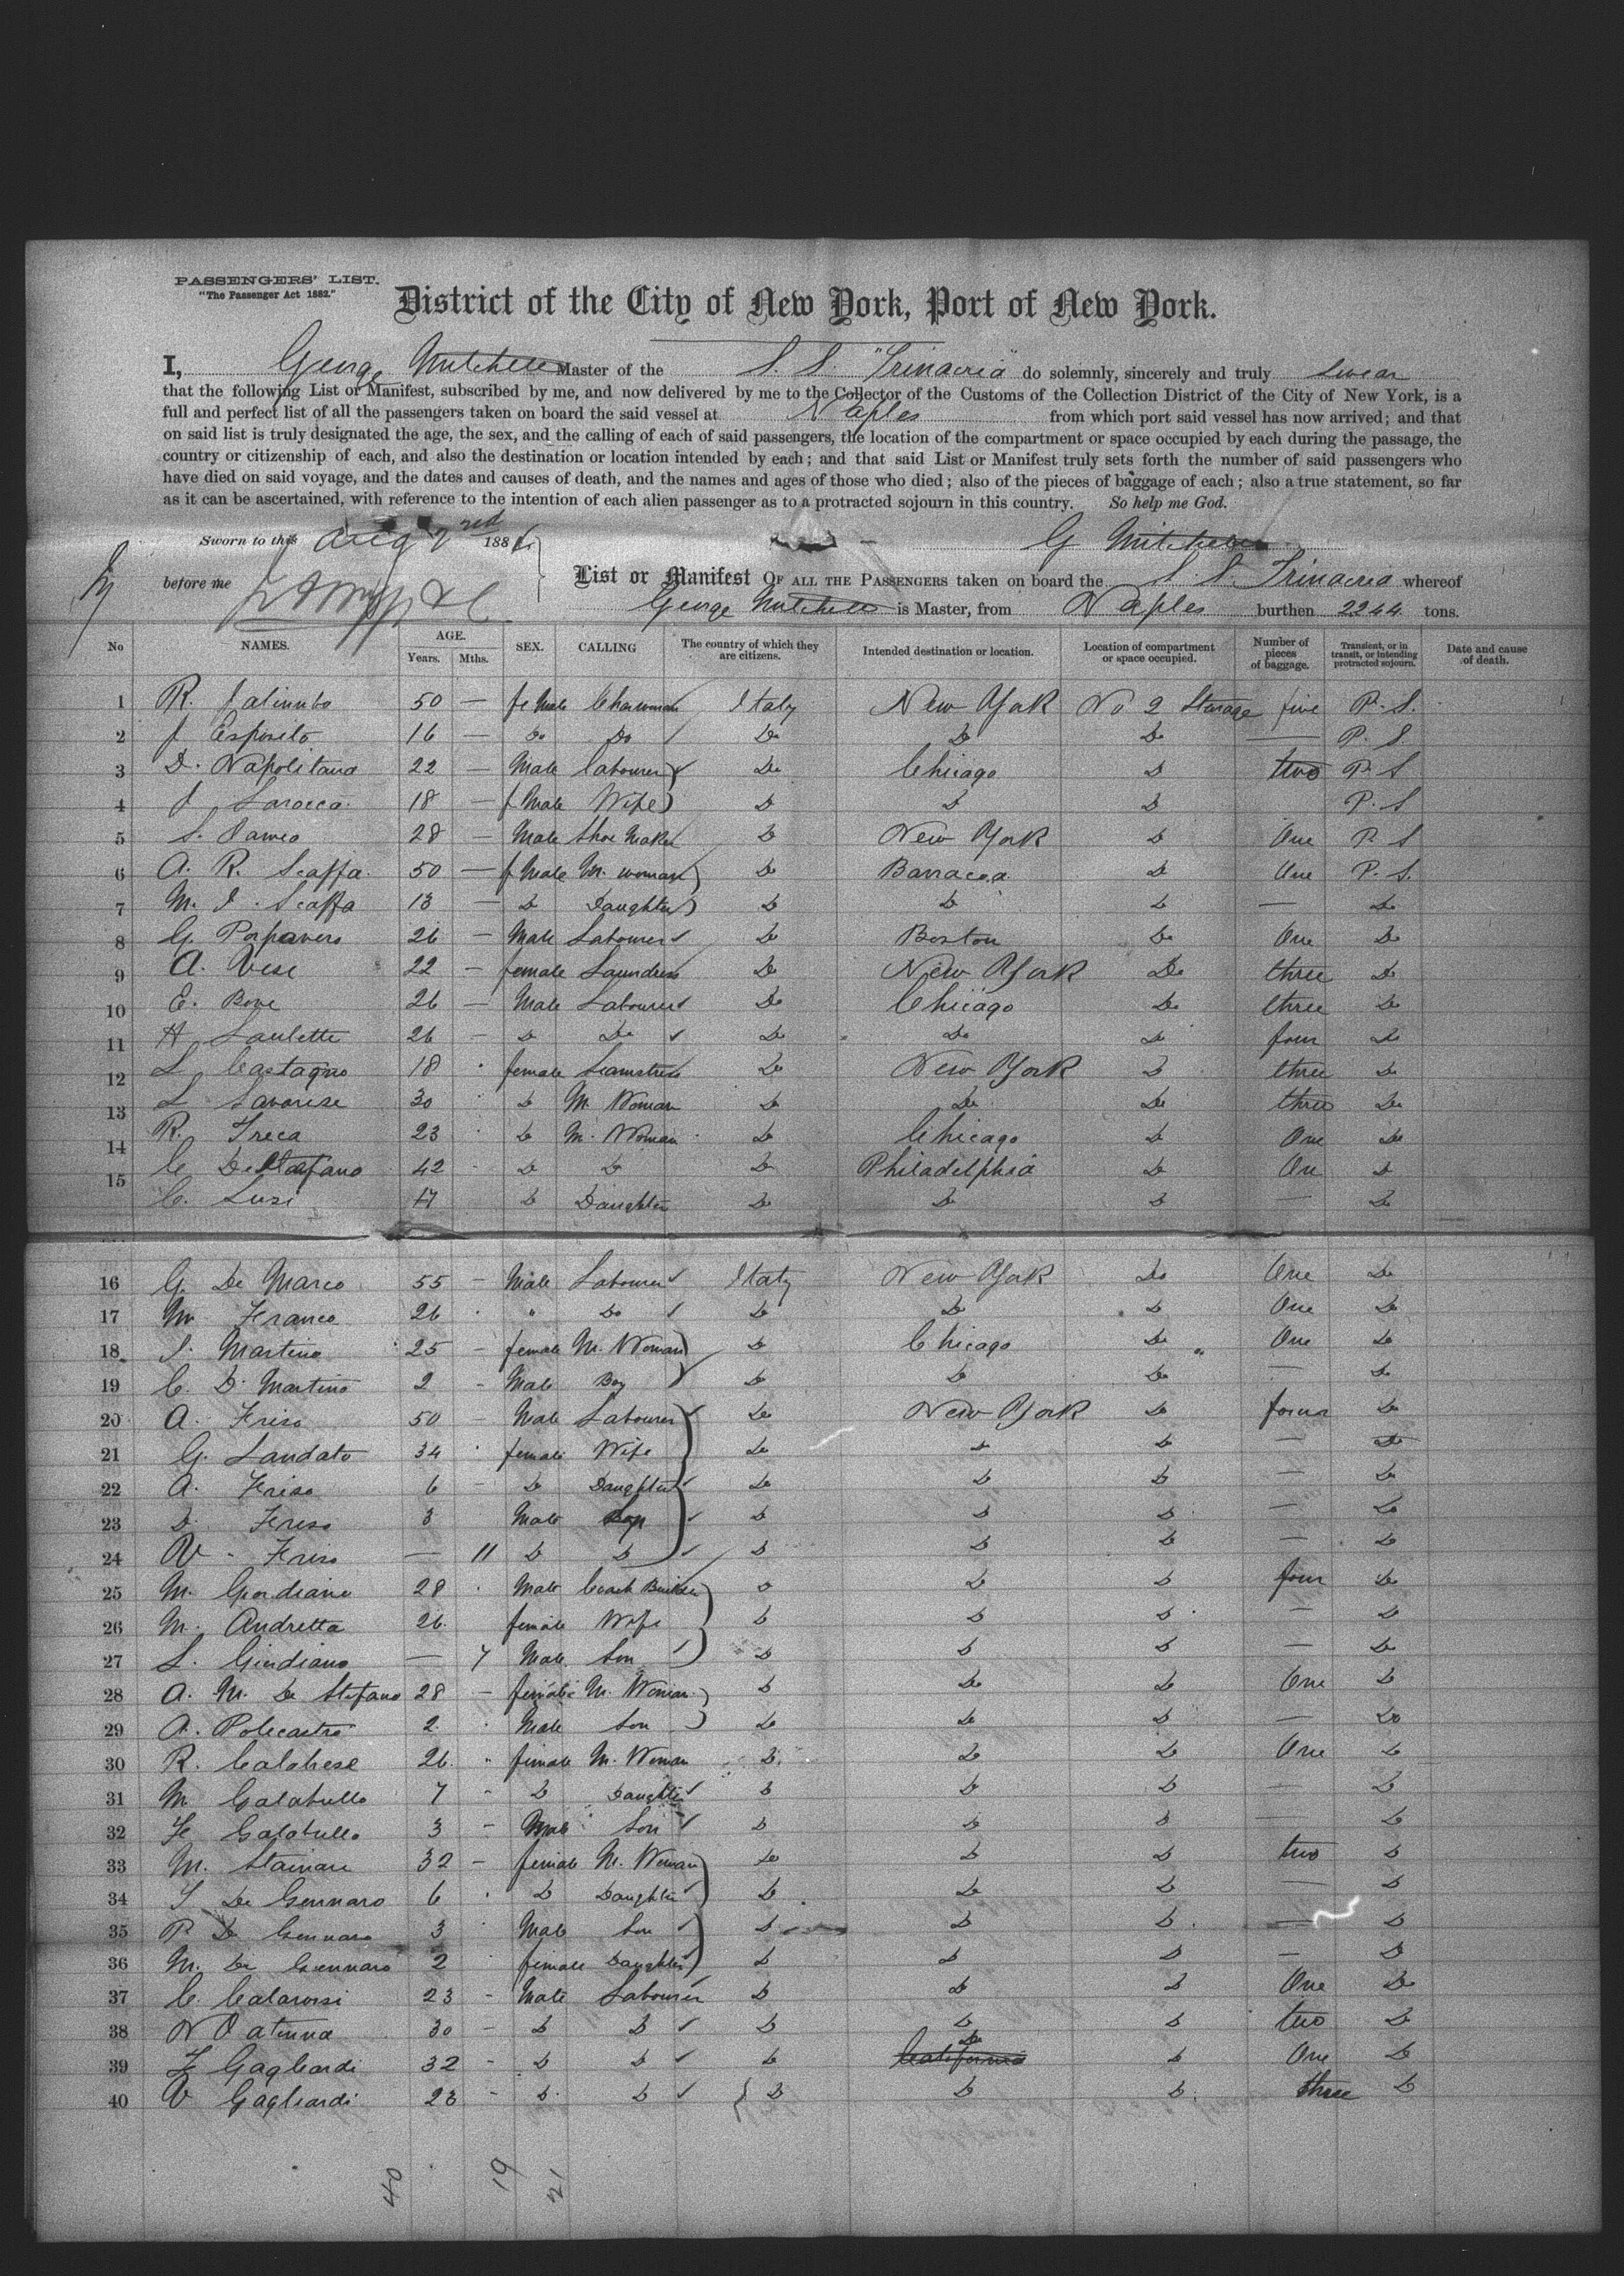 PASSENGERS' LIST.
"The Passenger Act 1882."
District of the City of New York, Port of New York.
I, George Mitchell Master of the S. S. "Trinacria" do solemnly, sincerely and truly swear
that the following List or Manifest, subscribed by me, and now delivered by me to the Collector of the Customs of the Collection District of the City of New York, is a
full and perfect list of all the passengers taken on board the said vessel at Naples from which port said vessel has now arrived; and that
on said list is truly designated the age, the sex, and the calling of each of said passengers, the location of the compartment or space occupied by each during the passage, the
country or citizenship of each, and also the destination or location intended by each; and that said List or Manifest truly sets forth the number of said passengers who
have died on said voyage, and the dates and causes of death, and the names and ages of those who died; also of the pieces of baggage of each; also a true statement, so far
as it can be ascertained, with reference to the intention of each alien passenger as to a protracted sojourn in this country. So help me God.
Sworn to this Aug 2nd 1886 G Mitchell
before me
List or Manifest OF ALL THE PASSENGERS taken on board the S. S. Trinacria whereof
George Mitchell is Master, from Naples burthen 2244 tons.
No NAMES. AGE. Years. Mths. SEX. CALLING The country of which they are citizens. Intended destination or location. Location of compartment or space occupied. Number of pieces of baggage. Transient, or in transit, or intending protracted sojourn. Date and cause of death.
1 R. 50 — female Charwoman Italy New York No 2 Sterage five P. S.
2 J Esposito 16 — Do Do Do Do Do — P. S.
3 D. Napolitana 22 — Male Labourer Do Chicago D two P. S
4 J Larocca 18 — fmale Wife D D D P. S
5 S. 28 — Male Shoe Maker D New York D One P S
6 A. R. Scaffa 50 — fmale M. woman Do Barracca Do One P. S.
7 M. J. Scaffa 13 — D Daughter D D D — Do
8 G. Papavero 26 — Male Labourer Do Boston Do One Do
9 A. Vese 22 — female Laundress Do New York Do three Do
10 E. Bove 26 — Male Labourer Do Chicago Do three Do
11 A Laulette 26 — D Do Do Do D four Do
12 L Castagno 18 female Seamstress Do New York D three Do
13 L Savarese 30 D M. Woman D Do Do three Do
14 R. Treca 23 D M. Woman D Chicago D One Do
15 C DeStefano 42 D D D Philadelphia D One D
C. Lusi 17 D Daughter Do D D — Do
16 G. De Marco 55 — Male Labourer Italy New York Do One Do
17 M Franco 26 " Do D D D One Do
18 S. Martino 25 — female M. Woman D Chicago Do One Do
19 C. D. Martino 2 — Male Boy D D Do — D
20 A. Friso 50 — Male Labourer Do New York D four Do
21 G. Landato 34 female Wife Do D D — Do
22 A. Friso 6 D Daughter D D D — D
23 D. Friso 3 Male Boy D D D — Do
24 V. Friso — 11 D D D D D — D
25 M. Giordiano 28 Male Coach Builder D D D four Do
26 M. Andretta 26 female Wife D D D — D
27 L. Giordiano — 7 Male Son D D D — Do
28 A. M. De Stefano 28 — female M. Woman D Do D One D
29 A. Polecastro 2 Male Son Do Do D — Do
30 R. Calabrese 26 female M. Woman D. D D One D
31 M Galatullo 7 D Daughter D D D — D
32 F Galatullo 3 — Male Son D D D — D
33 M. Stainare 32 — female M. Woman D D D two D
34 T De Gennaro 6 D Daughter D Do D — D
35 P De Gennaro 3 Male Son D D D — D
36 M. De Gennaro 2 female Daughter D D D — D
37 C. Calarossi 23 — Male Labourer D D D One Do
38 N 30 — D D D D D two D
39 F Gagliardi 32 — D D D Do D One D
40 V Gagliardi 23 — D D D D D three D
40 19 21